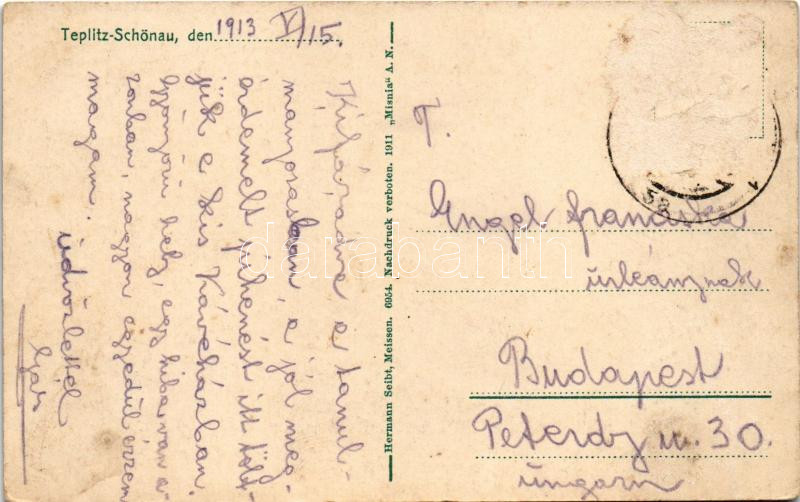 Teplitz-Schönau, den 1913 V/15.
Kifáradva a tanul-
mányozásban, a jól meg-
érdemelt pihenést itt tölt-
jük e kis Kávéházban.
Gyönyörű hely, egy hiba van a-
zonban, nagyon egyedül érzem
magam.
üdvözlettel
Hermann Seibt, Meissen. 6954. Nachdruck verboten. 1911 „Misnia“ A. N.
T.
Engel Franciska
úrleánynak
Budapest
Peterdy u. 30.
Ungarn
darabanth